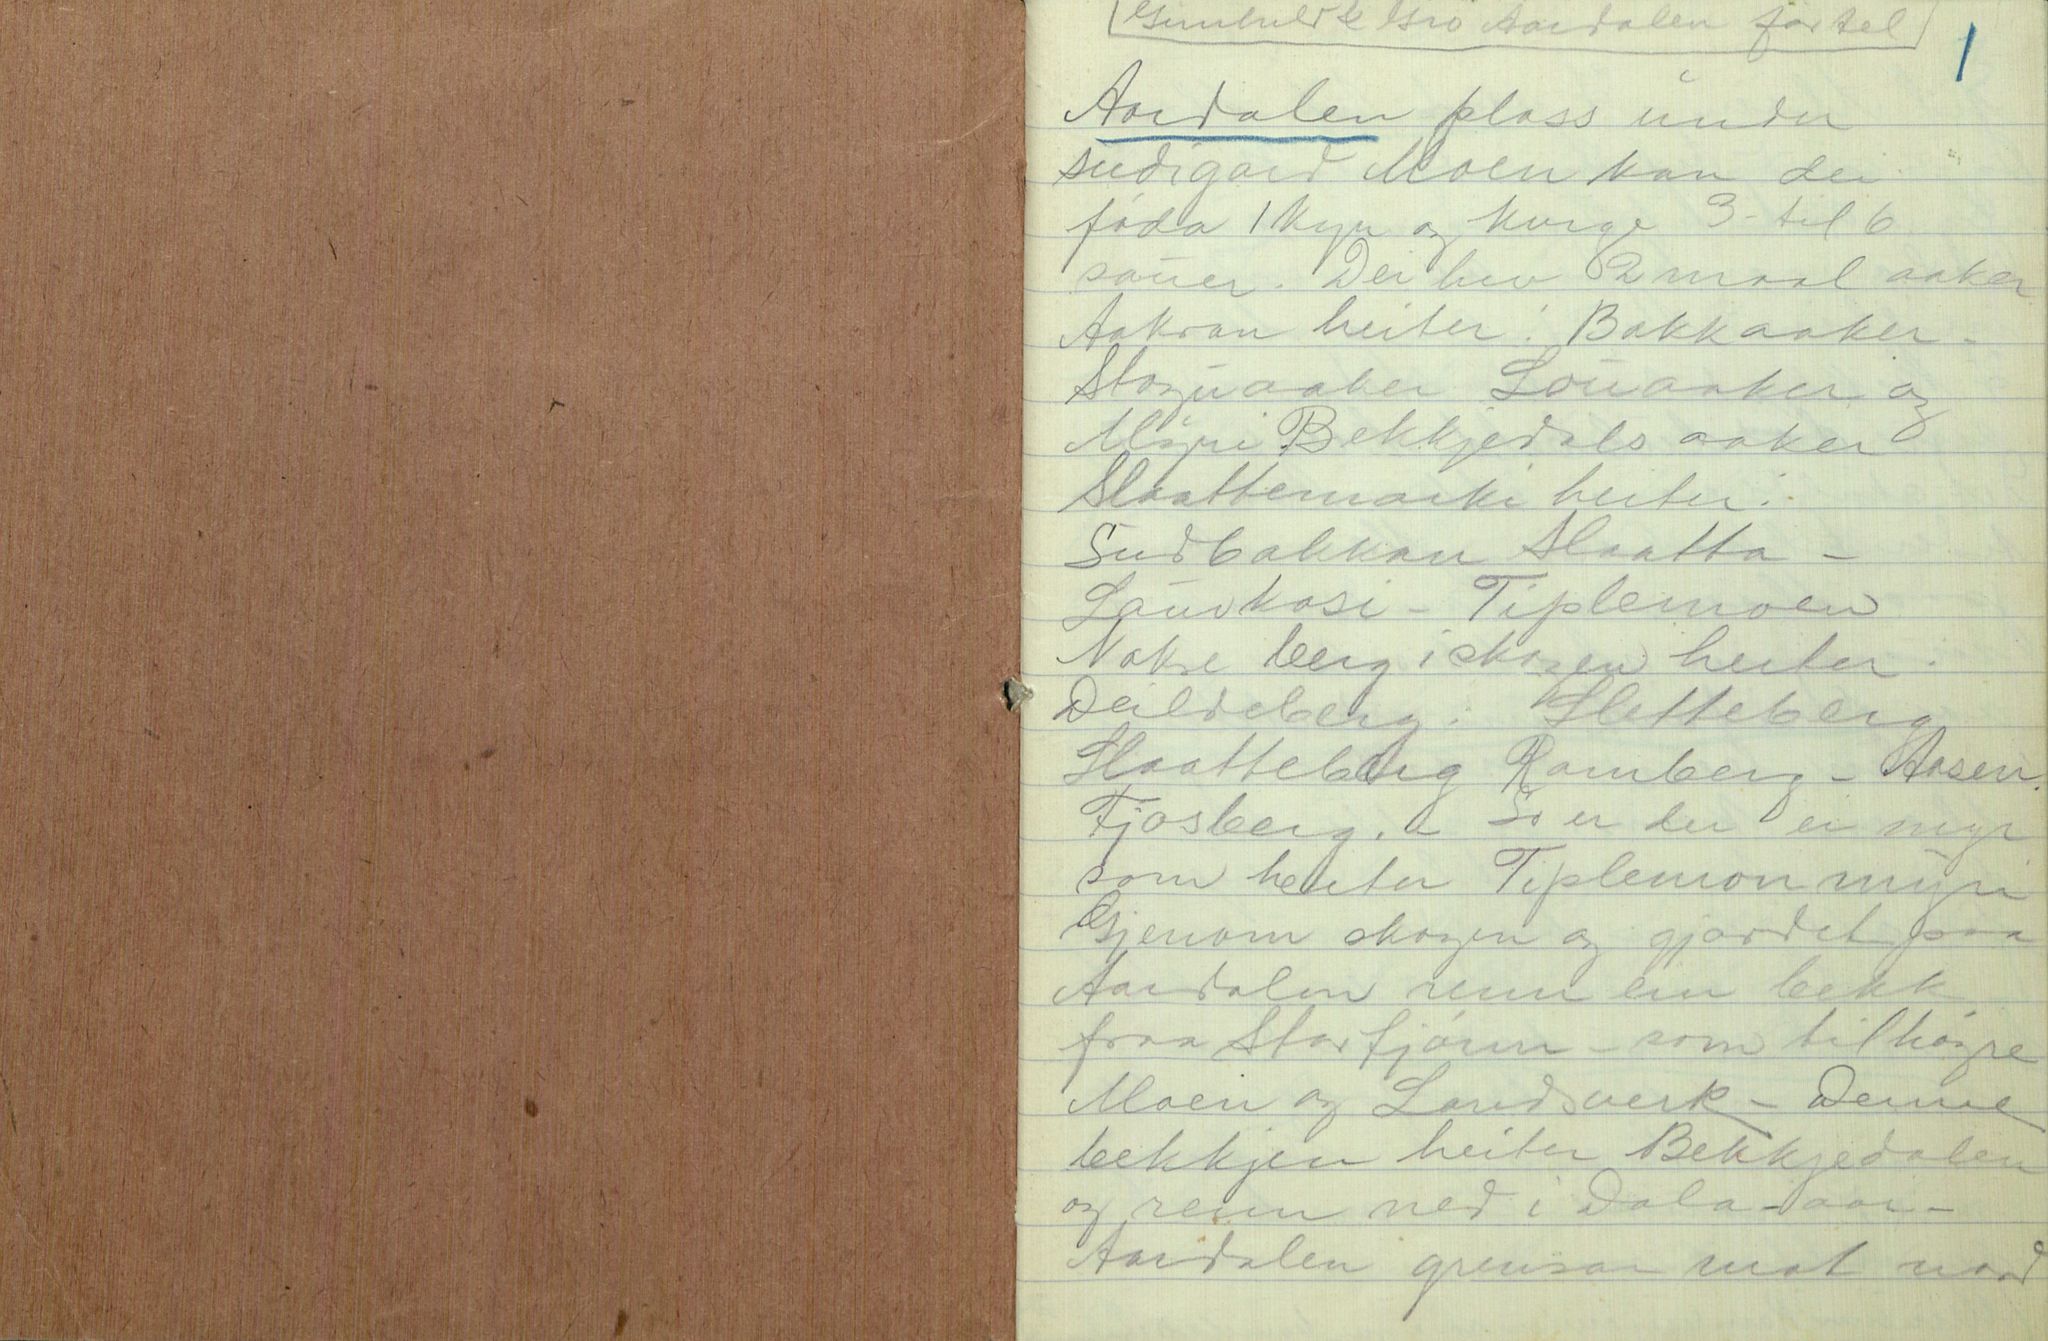 Gunhild & Gro Aardalen fortel
1
Aardalen plass under
sudigard Moen kan dei
föda 1 kyr og kvige 3 til 6
sauer. Dei hev 2 maal aaker
Aakran heiter: Bakkaaker -
Stoguaaker Louaaker og
Myri Bekkjedals aaker
Slaattemarki heiter:
Sudbakkan Slaatta -
Tiplemoen
Nokre berg i skogen heiter.
Deildeberg. Sletteberg
Slaatteberg Ramberg - Aasen.
Fjosberg. - So er der ei myr
som heiter Tiplemonmyri
Gjenom skogen og gjordet paa
Aardalen renn ein bekk
fraa Stortjönn - som tilhögre
Moen og Landsverk - Denne
bekkjen heiter Bekkjedalen
og renn ned i Dala-aar -
Aardalen grensar mot nord